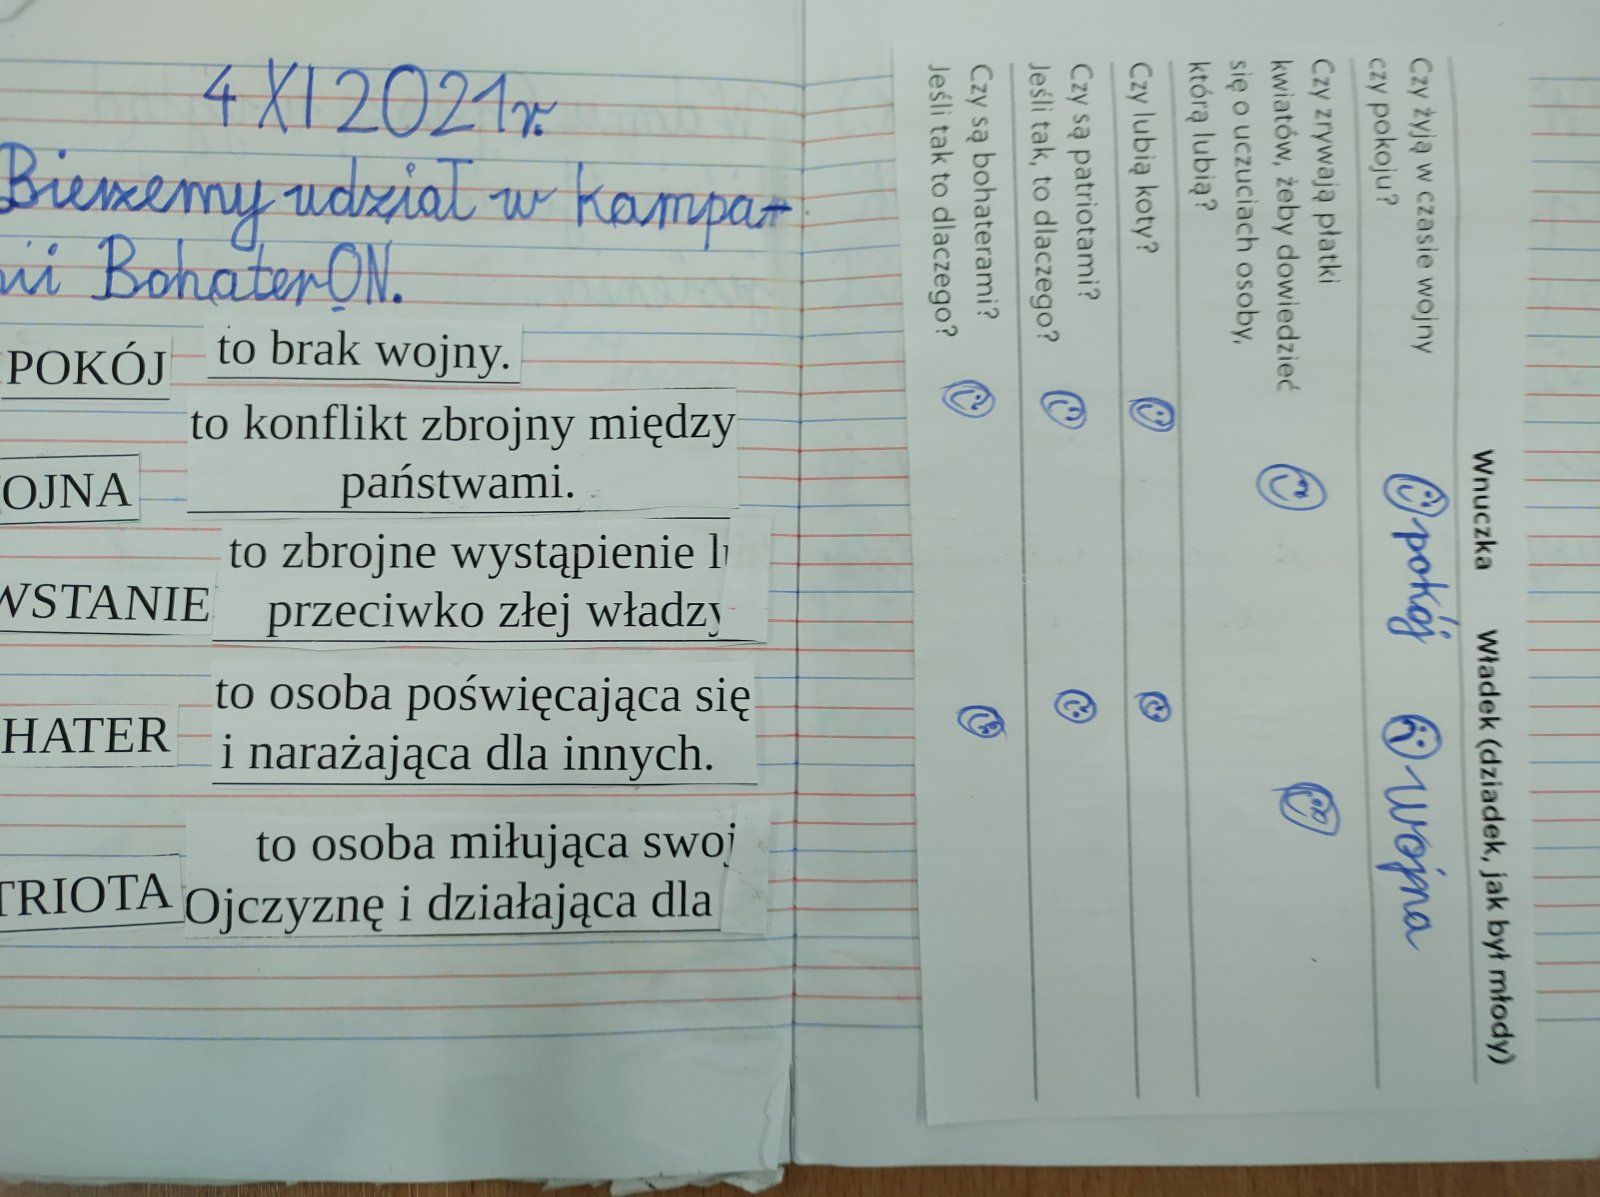 4 XI 2021 r.
Bierzemy udział w kampa-
nii BohaterON.
POKÓJ to brak wojny.
OJNA to konflikt zbrojny między
państwami.
WSTANIE to zbrojne wystąpienie
przeciwko złej władzy
HATER to osoba poświęcająca się
i narażająca dla innych.
TRIOTA to osoba miłująca swoj
Ojczyznę i działająca dla
Wnuczka Władek (dziadek, jak był młody)
Czy żyją w czasie wojny
czy pokoju? pokój wojna
Czy zrywają płatki
kwiatów, żeby dowiedzieć
się o uczuciach osoby,
którą lubią?
Czy lubią koty?
Czy są patriotami?
Jeśli tak, to dlaczego?
Czy są bohaterami?
Jeśli tak to dlaczego?